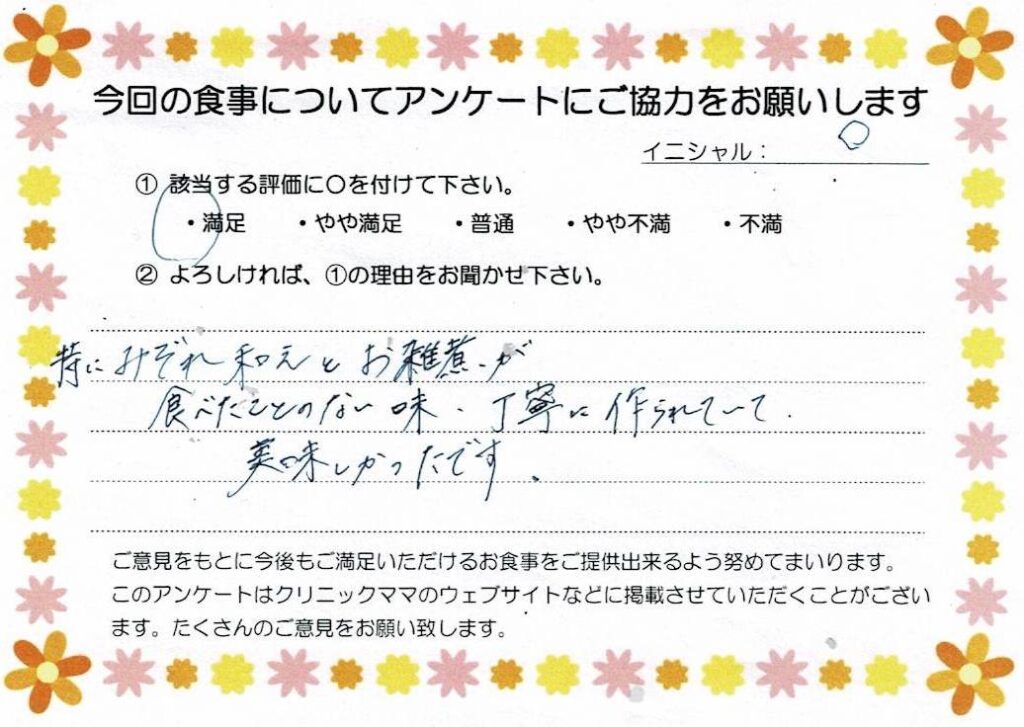 今回の食事についてアンケートにご協力をお願いします
イニシャル：
① 該当する評価に〇を付けて下さい。
・満足 ・やや満足 ・普通 ・やや不満 ・不満
② よろしければ、①の理由をお聞かせ下さい。
特にみぞれ和えとお雑煮が
食べたことのない味、丁寧に作られていて、
美味しかったです。
ご意見をもとに今後もご満足いただけるお食事をご提供出来るよう努めてまいります。
このアンケートはクリニックママのウェブサイトなどに掲載させていただくことがござい
ます。たくさんのご意見をお願い致します。